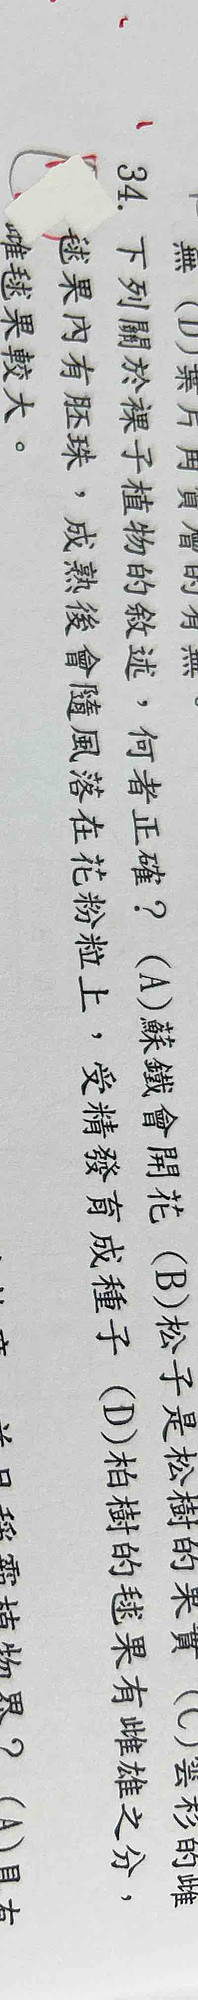 無 (D)葉片角質層的有無。
34. 下列關於裸子植物的敘述，何者正確？ (A)蘇鐵會開花 (B)松子是松樹的果實 (C)雲杉的雌
毬果內有胚珠，成熟後會隨風落在花粉粒上，受精發育成種子 (D)柏樹的毬果有雌雄之分，
雌毬果較大。
植物界？ (A)具有